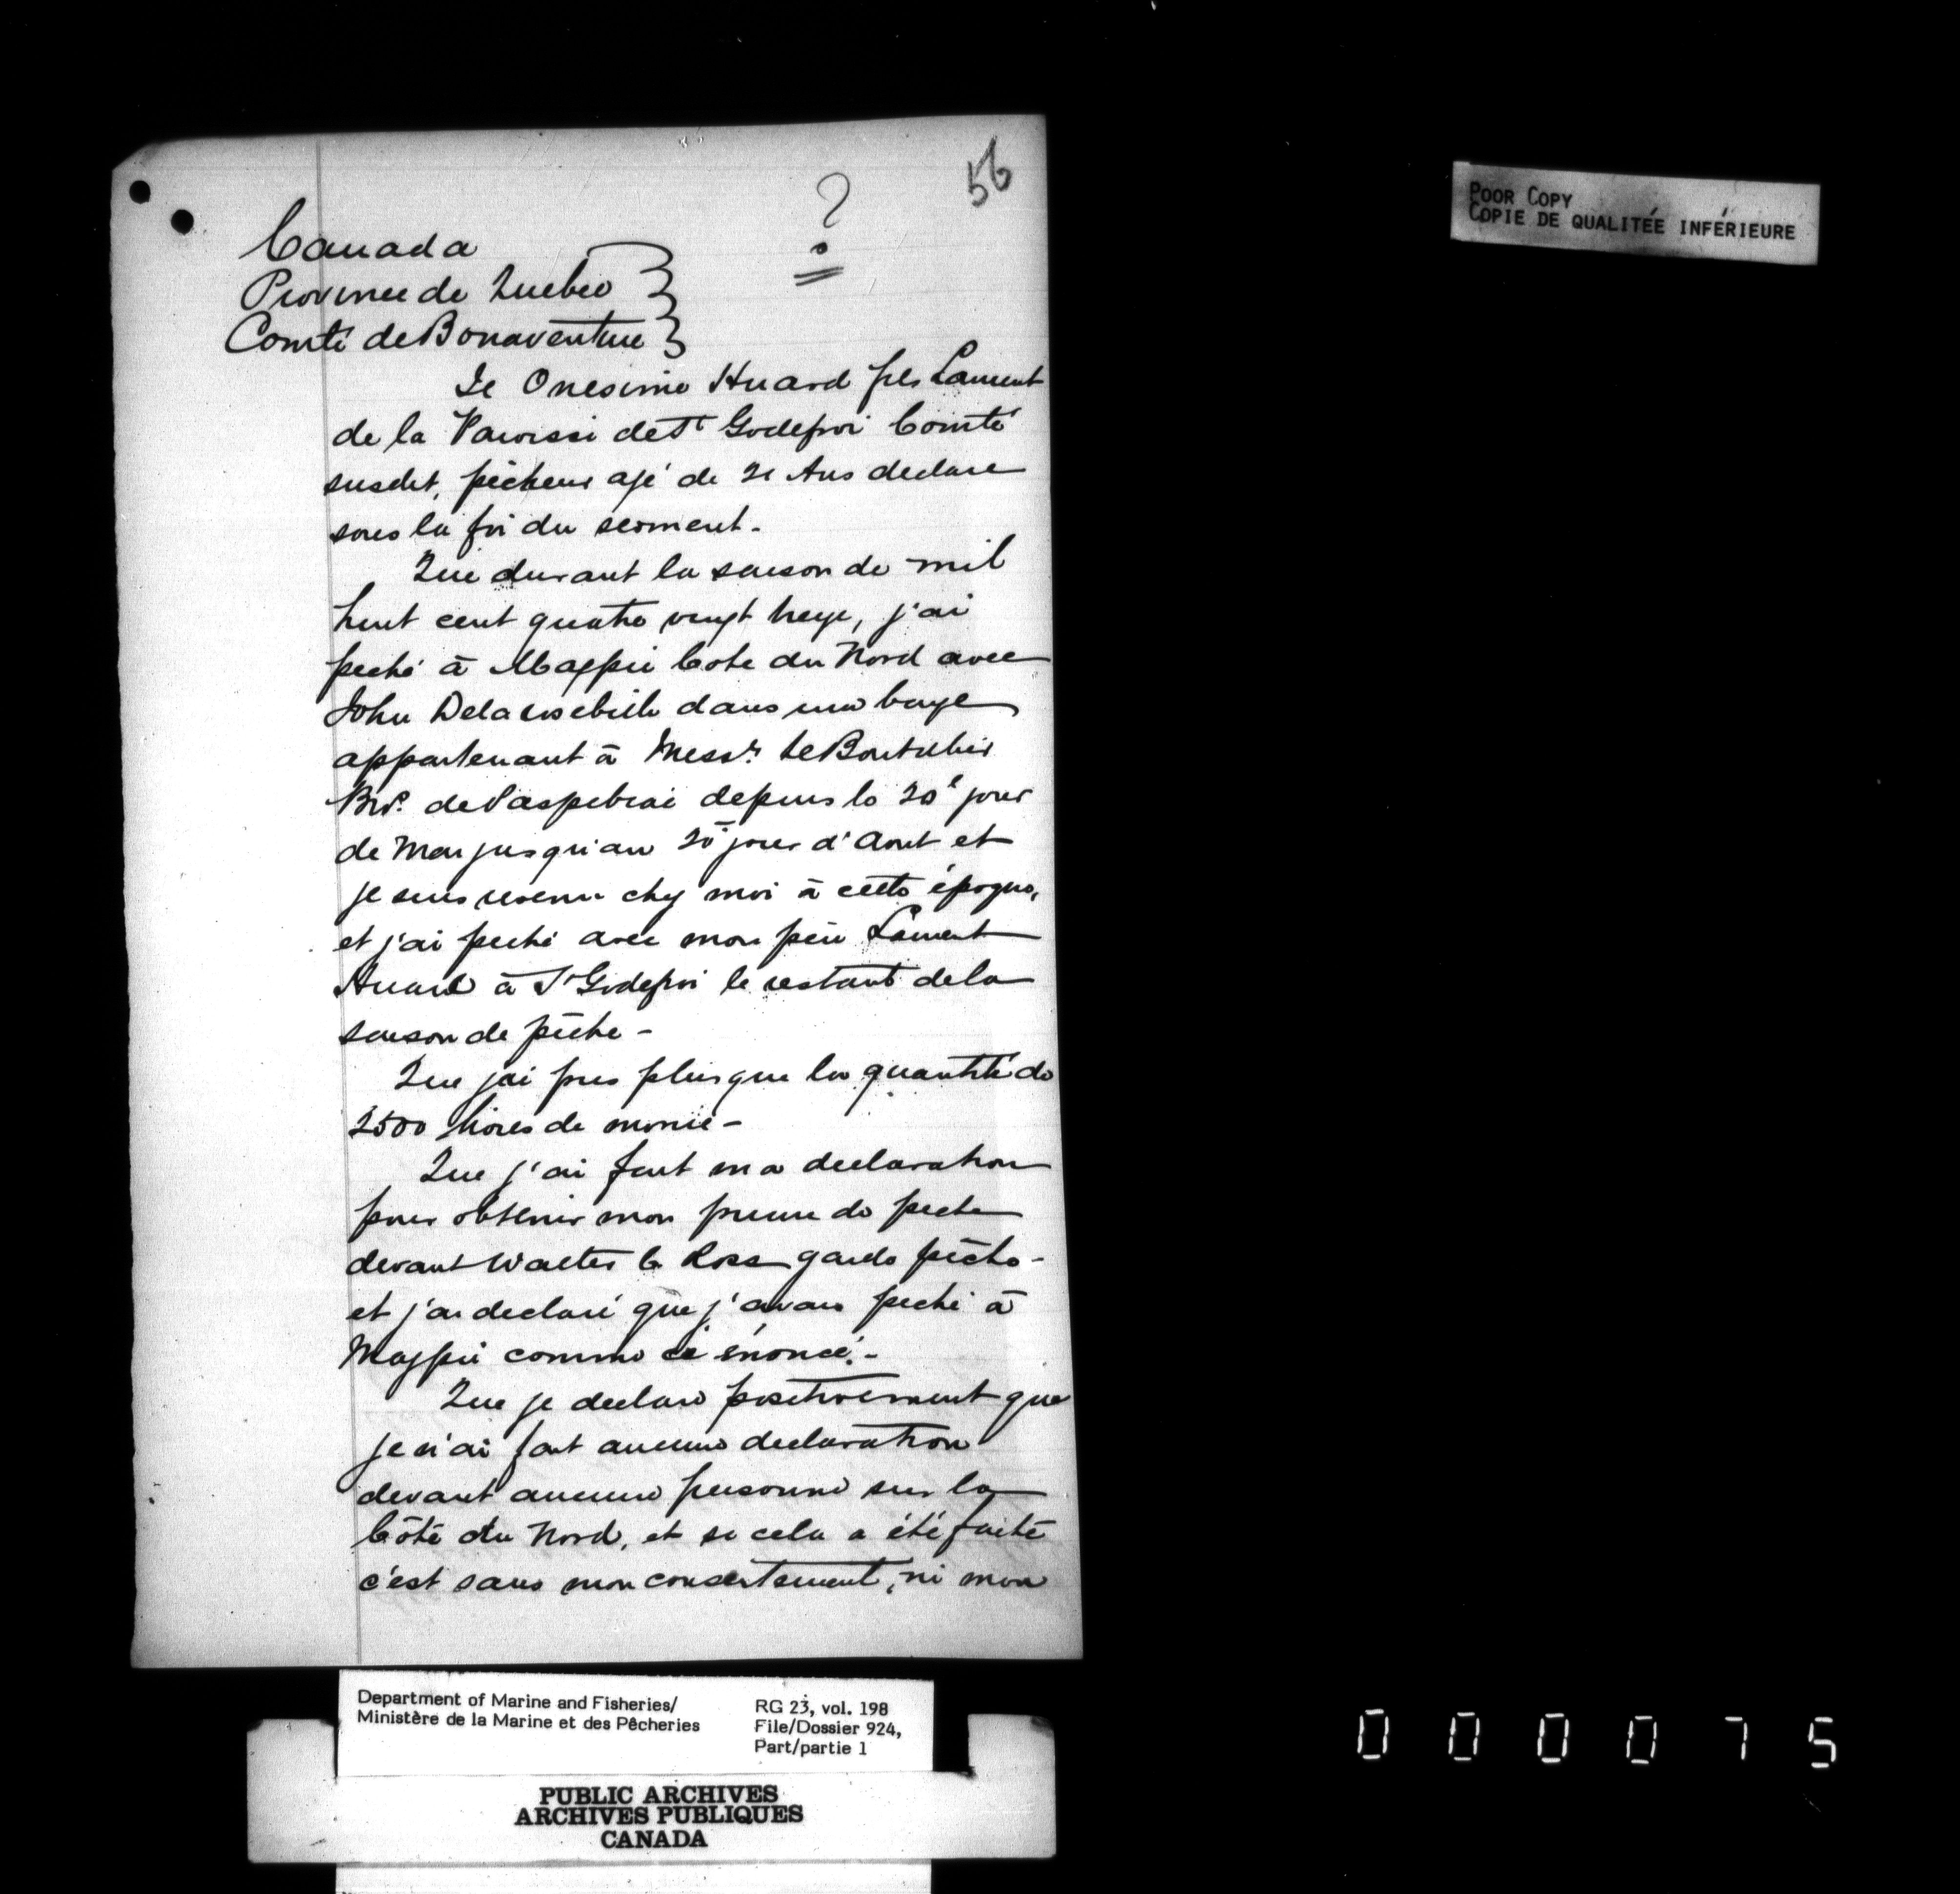 56
?
POOR COPY
COPIE DE QUALITÉE INFÉRIEURE
Canada
Province de Quebec
Comté de Bonaventure
Je Onesime Huard fils Laurent
de la Paroisse de St Godefroi Comté
susdit, pêcheur agé de 21 Ans declare
sous la foi du serment.
Que durant la saison de mil
huit cent quatre vingt treize, j'ai
peché à Magpie Cote du Nord avec
John dans une barge
appartenant à Messrs LeBoutillier
Bros. de Paspebiac depuis le 20e jour
de Mai jusqu'au 20e jour d'Aout et
je suis revenu chez moi à cette époque,
et j'ai peché avec mon père Laurent
Huard à St Godefroi le restant de la
saison de pêche -
Que j'ai pris plus que la quantité de
2500 livres de morue -
Que j'ai fait ma declaration
pour obtenir mon prime de peche
devant Walter G Ross garde pêche -
et j'ai declaré que j'avais peché à
Magpie comme ci énoncé. -
Que je declare positivement que
je n'ai fait aucune declaration
devant aucune personne sur la
Côte du Nord, et si cela a été faite
c'est sans mon consentement, ni mon
Department of Marine and Fisheries/
Ministère de la Marine et des Pêcheries
RG 23, vol. 198
File/Dossier 924,
Part/partie 1
PUBLIC ARCHIVES
ARCHIVES PUBLIQUES
CANADA
000075